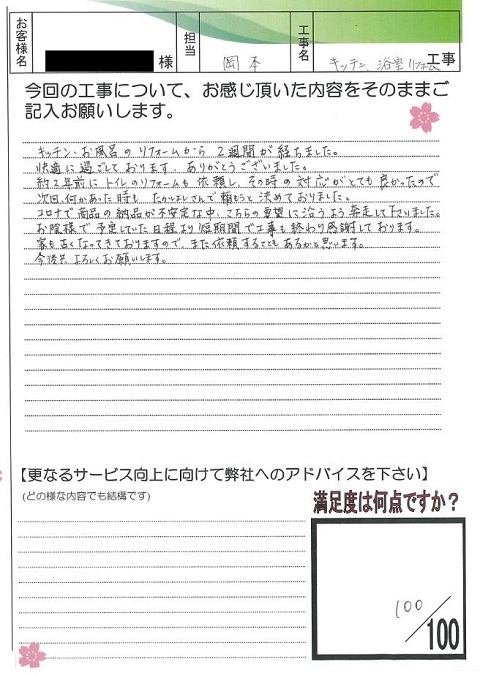 お客様名 様 担当 岡本 工事名 キッチン、浴室リフォーム 工事
今回の工事について、お感じ頂いた内容をそのままご
記入お願いします。
キッチン、お風呂のリフォームから2週間が経ちました。
快適に過ごしております。ありがとうございました。
約2年前にトイレのリフォームも依頼し、その時の対応がとても良かったので
次回、何かあった時も たかよしさんで頼もうと決めておりました。
コロナで商品の納品が不安定な中、こちらの要望に沿うよう奔走して下さいました。
お陰様で予定していた日程より短期間で工事も終わり感謝しております。
家も古くなってきておりますので、また依頼することもあるかと思います。
今後共よろしくお願いします。
【更なるサービス向上に向けて弊社へのアドバイスを下さい】
(どの様な内容でも結構です)
満足度は何点ですか？
100/100